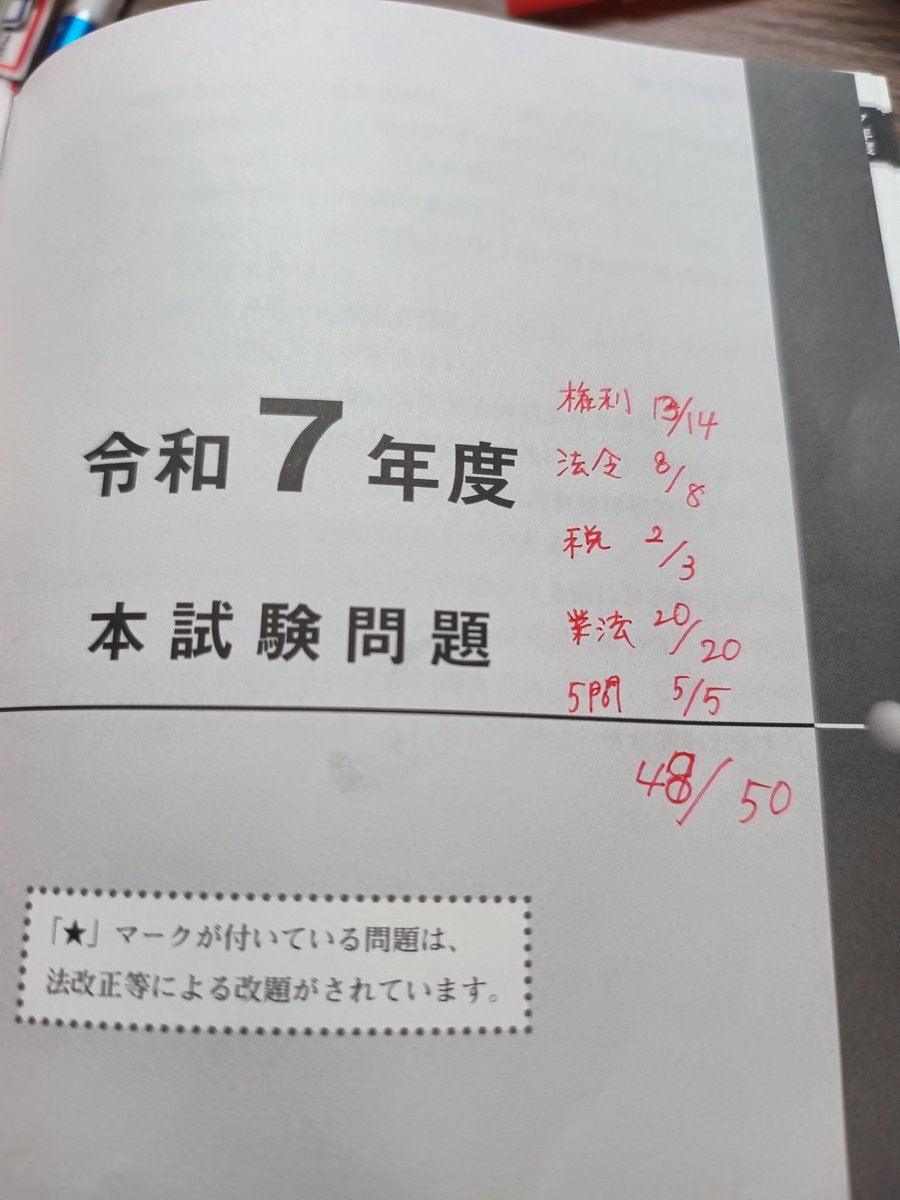 令和7年度
本試験問題
権利 13/14
法令 8/8
税 2/3
業法 20/20
5問 5/5
48/50
「★」マークが付いている問題は、
法改正等による改題がされています。